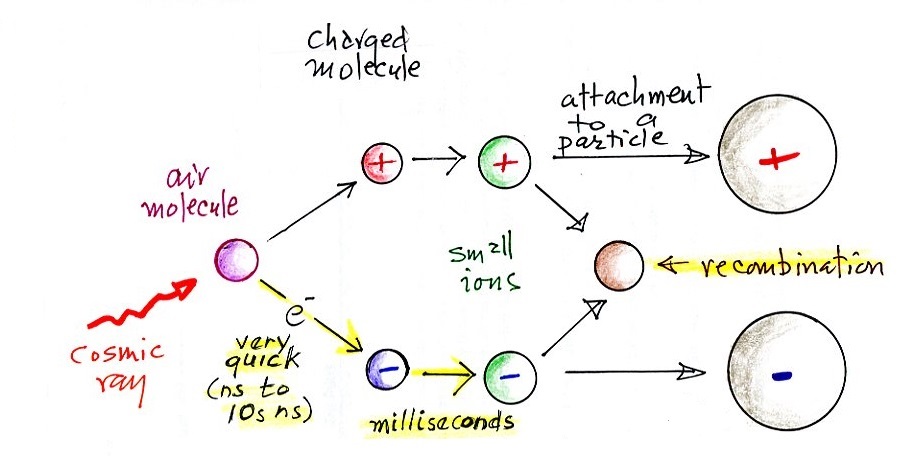 charged
molecule
attachment
to a
particle
+
+
+
air
molecule
small
ions
← recombination
e⁻
cosmic
ray
very
quick
(ns to
10s ns)
−
−
−
milliseconds